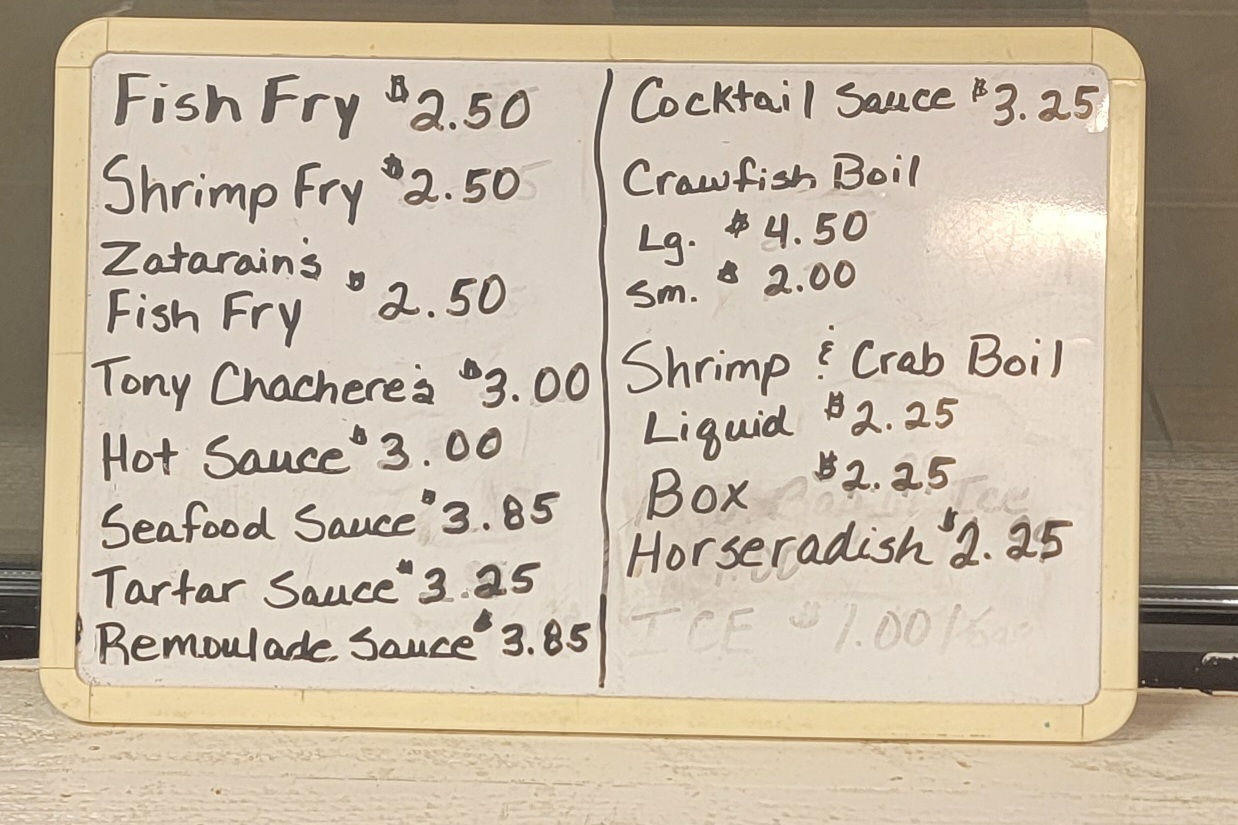 Fish Fry $2.50
Shrimp Fry $2.50
Zatarain's
Fish Fry $2.50
Tony Chachere's $3.00
Hot Sauce $3.00
Seafood Sauce $3.85
Tartar Sauce $3.25
Remoulade Sauce $3.85
Cocktail Sauce $3.25
Crawfish Boil
Lg. $4.50
Sm. $2.00
Shrimp & Crab Boil
Liquid $2.25
Box $2.25
Horseradish $2.25
ICE $1.00/